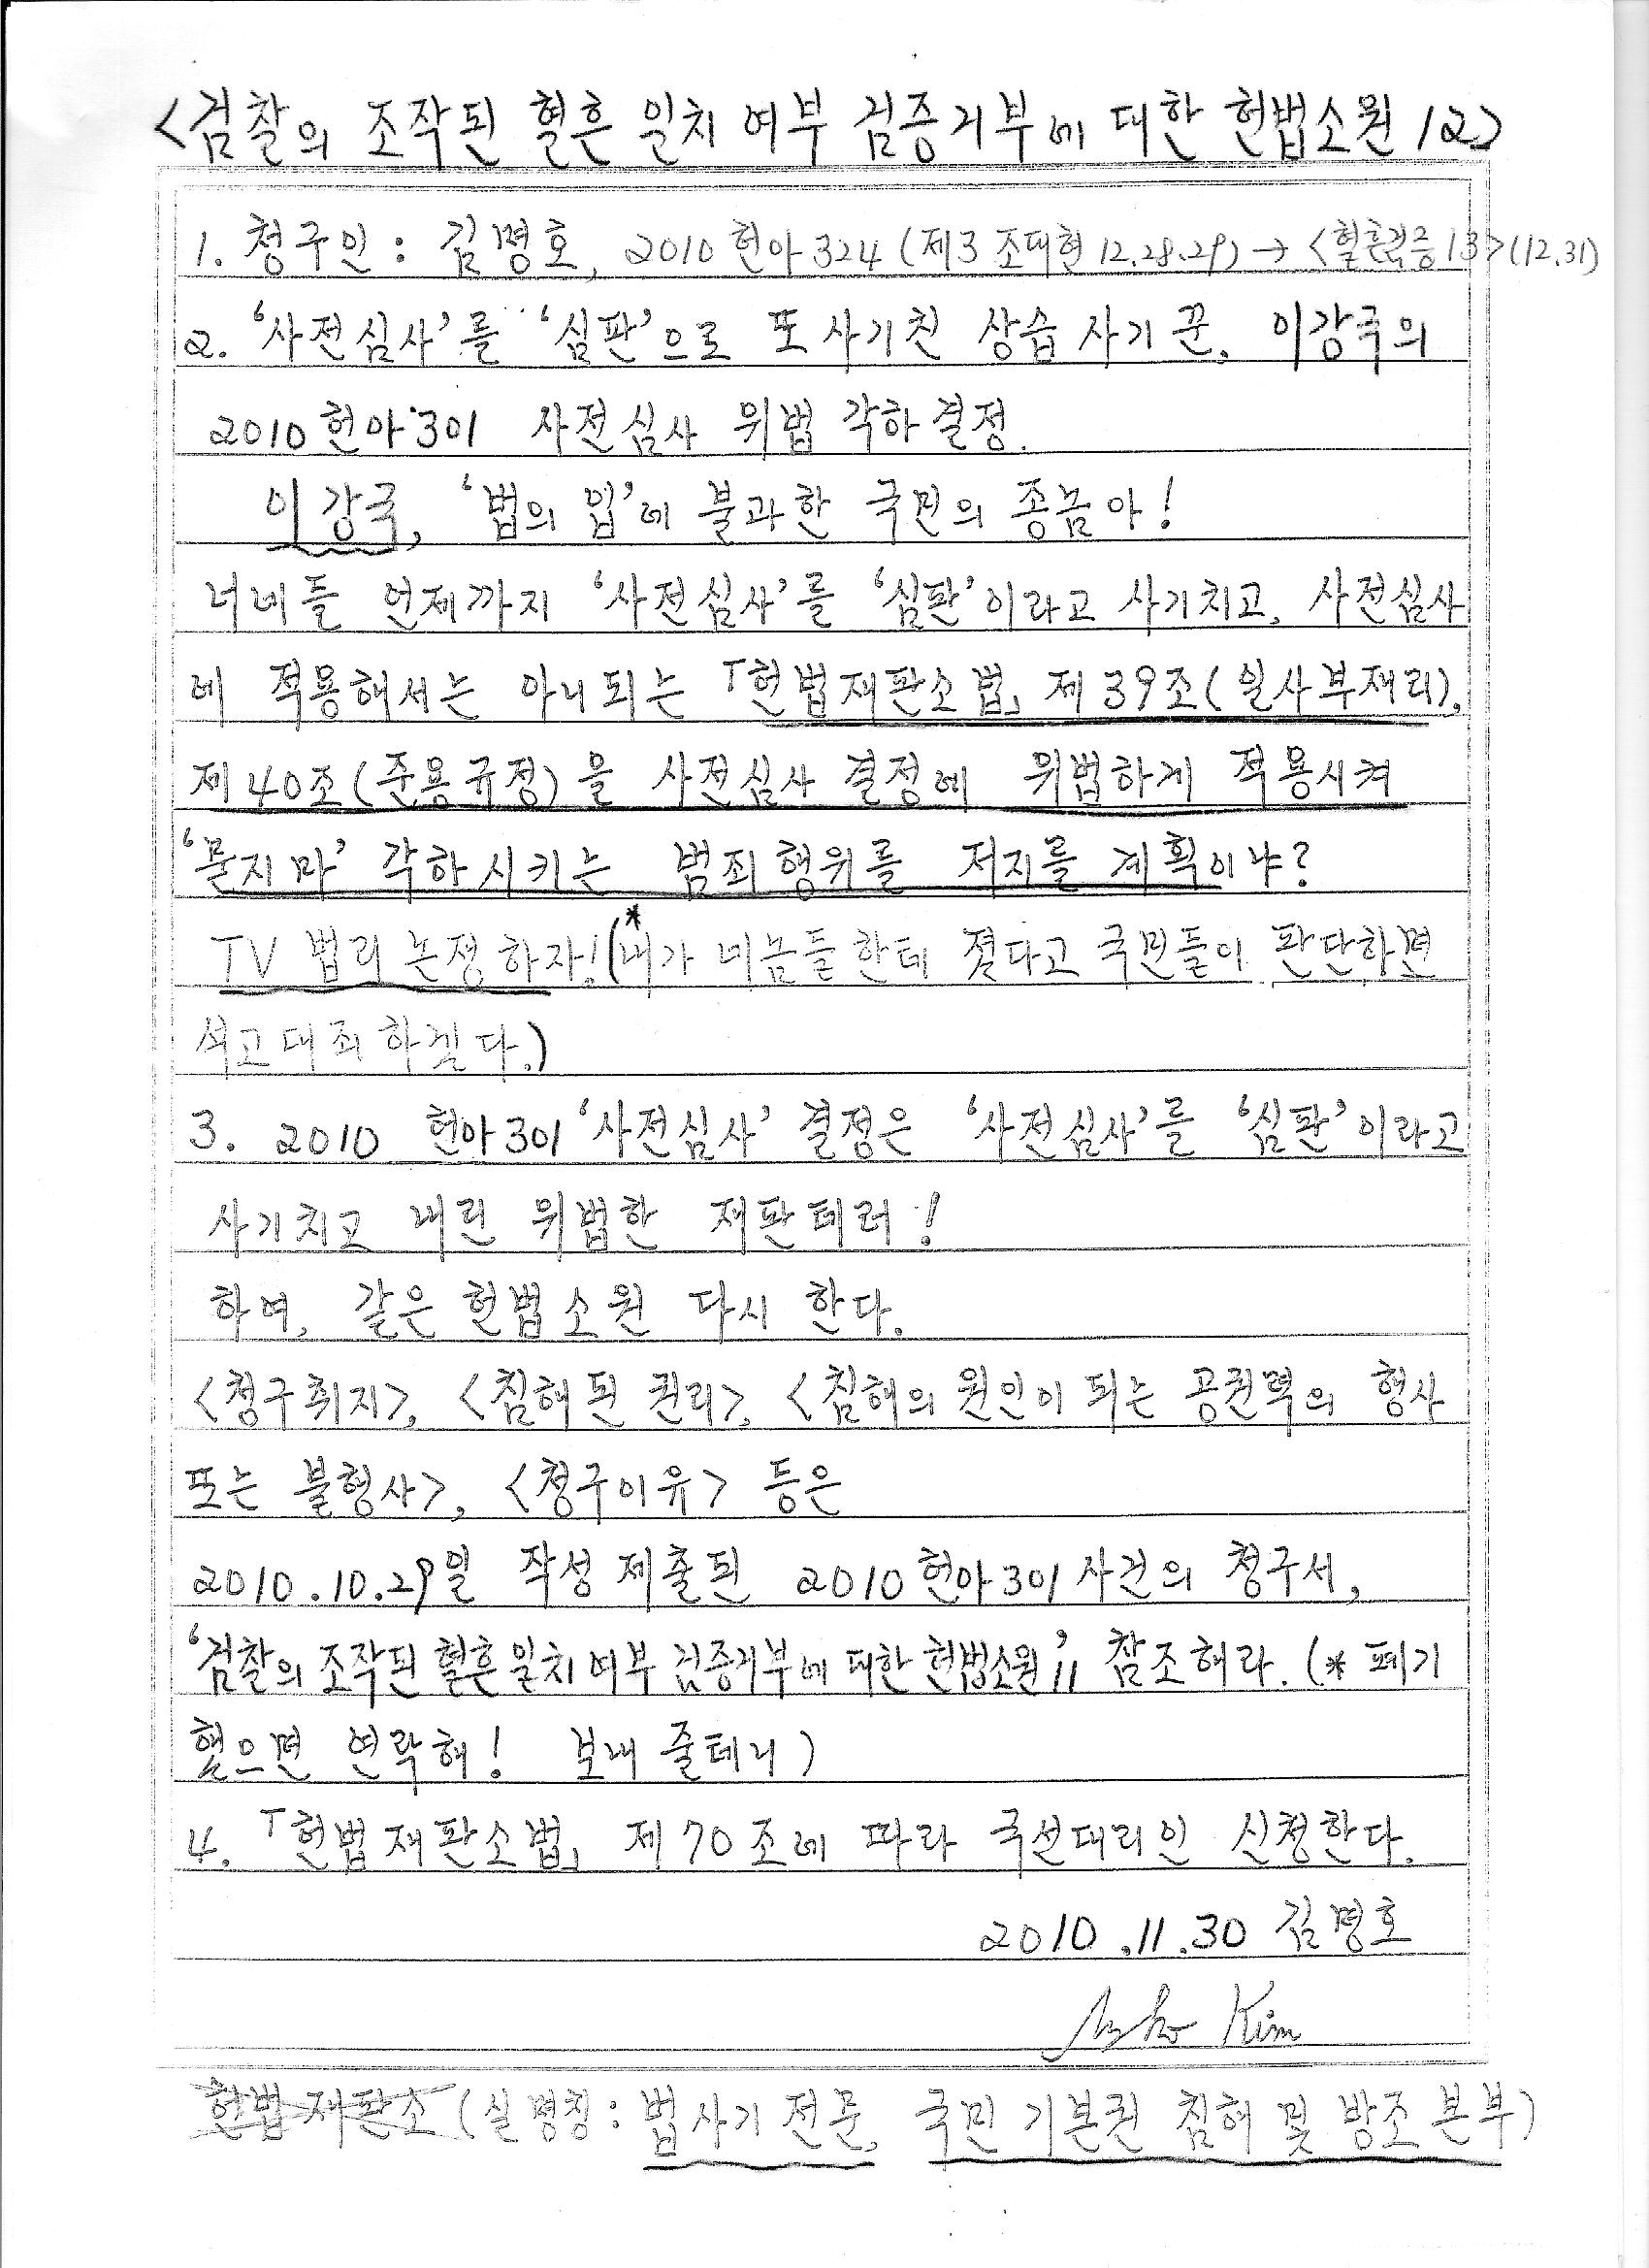 <검찰의 조작된 혈흔 일치 여부 검증거부에 대한 헌법소원 12>
1. 청구인 : 김명호, 2010헌아324 (제3 조대현 12.28.29) → <혈흔검증13>(12.31)
2. '사전심사'를 '심판'으로 또 사기친 상습 사기꾼, 이강국의
2010헌아301 사전심사 위법 각하결정.
이강국, '법의 입'에 불과한 국민의 종놈아!
너네들 언제까지 '사전심사'를 '심판'이라고 사기치고, 사전심사
에 적용해서는 아니되는 「헌법재판소법」 제39조(일사부재리),
제40조(준용규정)을 사전심사 결정에 위법하게 적용시켜
'묻지마' 각하시키는 범죄행위를 저지를 계획이냐?
TV 법리논쟁하자!(*내가 네놈들한테 졌다고 국민들이 판단하면
석고대죄하겠다.)
3. 2010 헌아301 '사전심사' 결정은 '사전심사'를 '심판'이라고
사기치고 내린 위법한 재판테러!
하여, 같은 헌법소원 다시 한다.
<청구취지>, <침해된 권리>, <침해의 원인이 되는 공권력의 행사
또는 불행사>, <청구이유> 등은
2010.10.29일 작성 제출된 2010헌아301사건의 청구서,
'검찰의 조작된 혈흔일치여부 검증거부에 대한 헌법소원 11' 참조해라. (* 폐기
했으면 연락해! 보내줄테니)
4. 「헌법재판소법」 제70조에 따라 국선대리인 신청한다.
2010.11.30 김명호
Kim
헌법재판소 (실명칭 : 법사기전문, 국민기본권 침해 및 방조 본부)